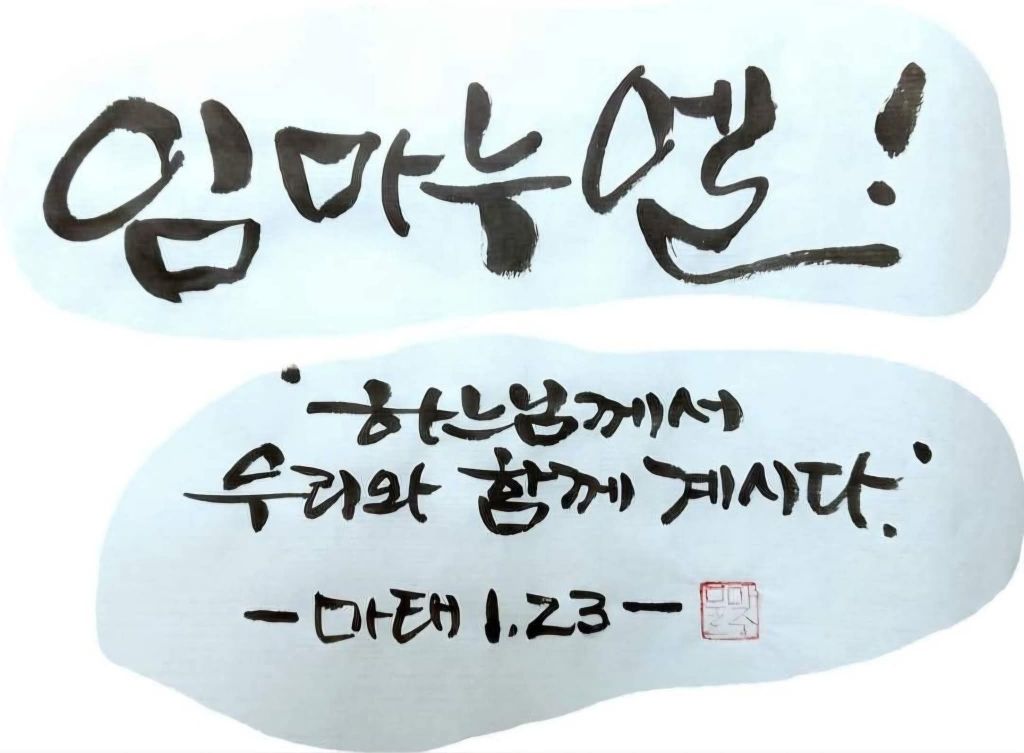 임마누엘!
·하느님께서
우리와 함께 계시다.·
-마태 1.23-